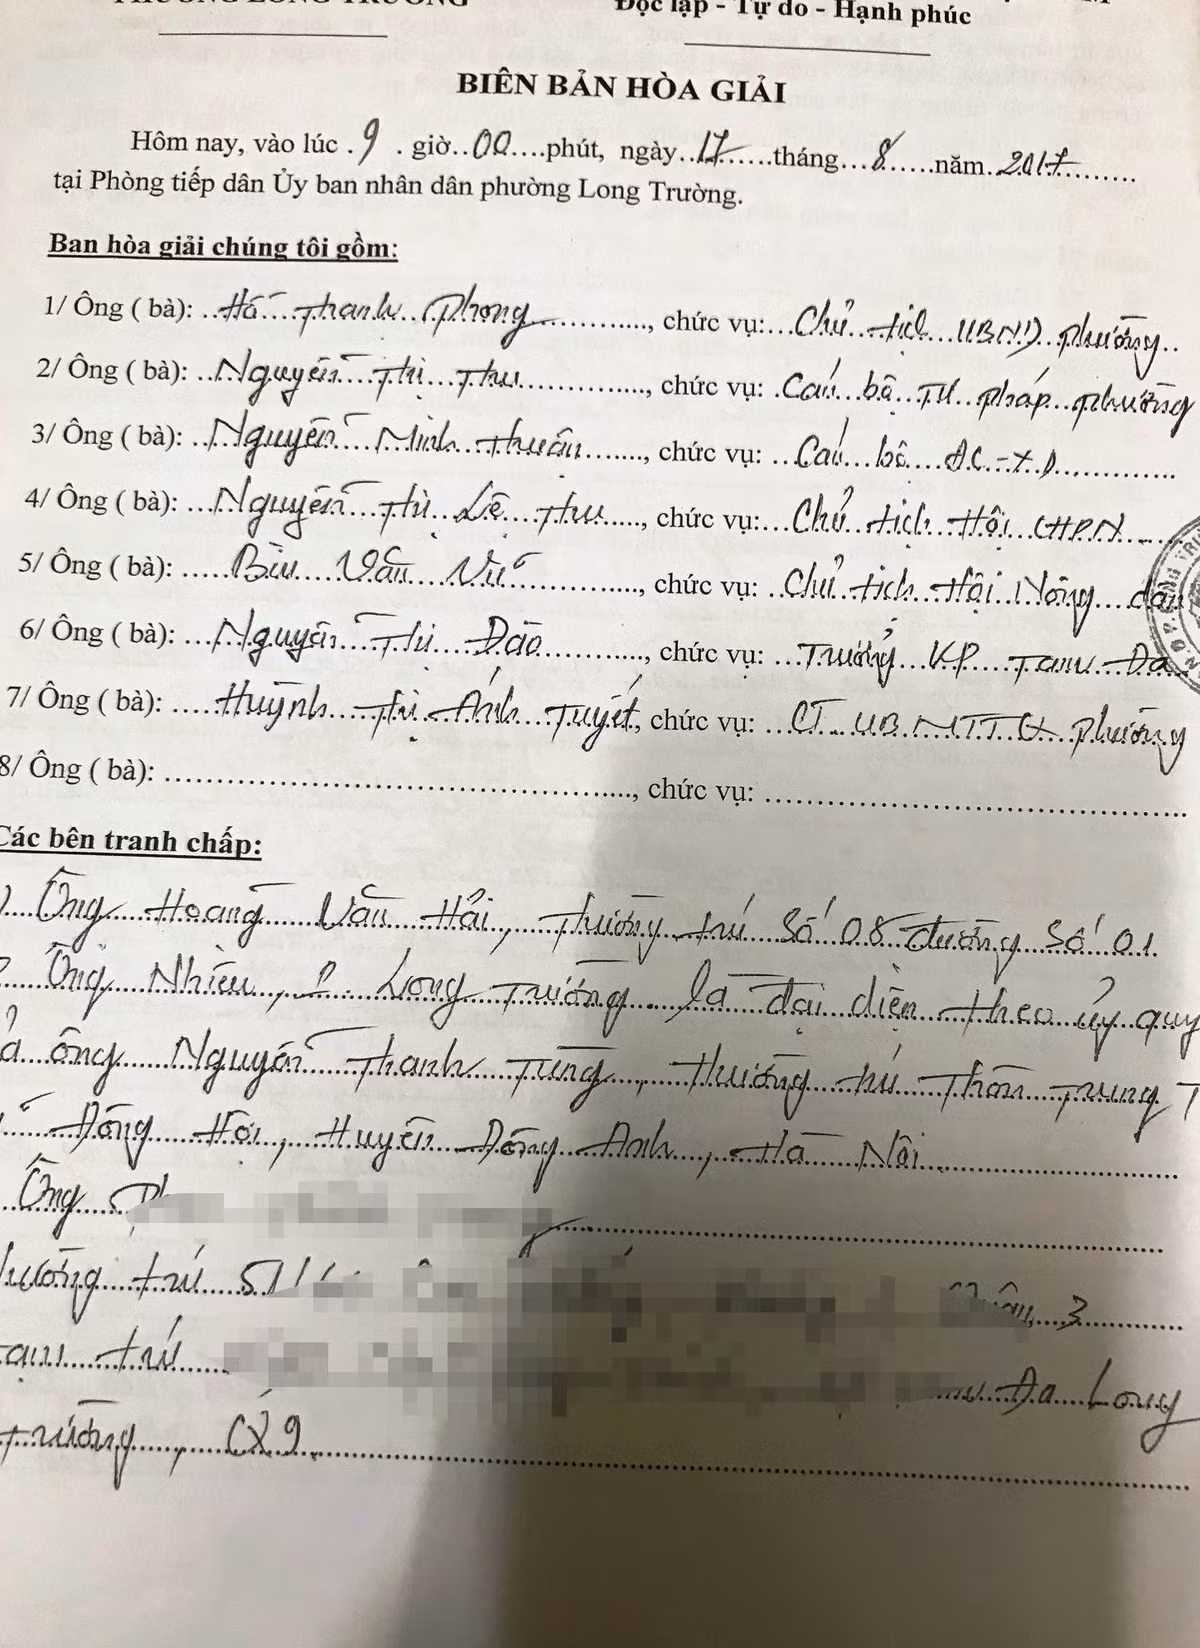 PHƯỜNG LONG TRƯỜNG
Độc lập - Tự do - Hạnh phúc
BIÊN BẢN HÒA GIẢI
Hôm nay, vào lúc .9. giờ..00....phút, ngày..17......tháng...8.....năm..2017.........
tại Phòng tiếp dân Ủy ban nhân dân phường Long Trường.
Ban hòa giải chúng tôi gồm:
1/ Ông ( bà): Hồ Thanh Phong, chức vụ: Chủ tịch UBND phường
2/ Ông ( bà): Nguyễn Thị Thu, chức vụ: Cán bộ Tư pháp phường
3/ Ông ( bà): Nguyễn Minh Thuấn, chức vụ: Cán bộ ĐC-XD
4/ Ông ( bà): Nguyễn Thị Lệ Thu, chức vụ: Chủ tịch Hội LHPN
5/ Ông ( bà): Bùi Văn, chức vụ: Chủ tịch Hội Nông dân
6/ Ông ( bà): Nguyễn Thị Đào, chức vụ: Trưởng KP Tam Đa
7/ Ông ( bà): Huỳnh Thị Ánh Tuyết, chức vụ: CT UBMTTQ phường
8/ Ông ( bà): ......................................................, chức vụ: ......................................................
Các bên tranh chấp:
Ông Hoàng Văn Hải, thường trú số 08 đường số 01
Ông Nhiêu, P. Long Trường là đại diện theo ủy quy
ông Nguyễn Thanh Tùng, thường trú Thôn Trung T
Đông Hội, Huyện Đông Anh, Hà Nội
Ông
trú 51 3
trú Đa Long
Trường, Q9